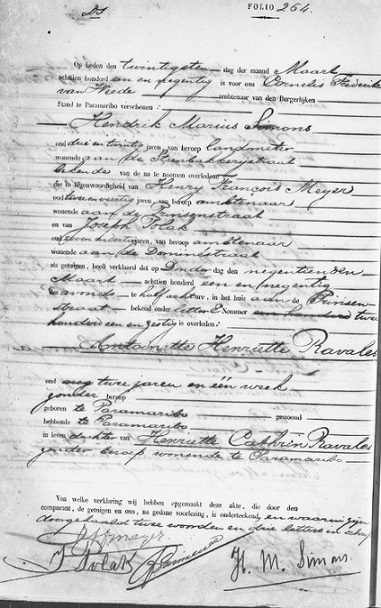 FOLIO 264.
Op heden den twintigsten dag der maand Maart
achttien honderd een en negentig is voor ons Cornelis Frederik
van Heede ambtenaar van den Burgerlijken
Stand te Paramaribo verschenen:
Hendrik Marius Simons
oud drie en twintig jaren, van beroep landmeter
wonende aan de Steenbakkerijstraat
bekende van de na te noemen overledene
die in tegenwoordigheid van Henry François Meyer
oud twee en veertig jaren, van beroep ambtenaar
wonende aan de Prinsenstraat
en van Joseph Polak
oud zeven en dertig jaren, van beroep ambtenaar
wonende aan de Dominéstraat
als getuigen, heeft verklaard dat op Donderdag den negentienden
Maart achttien honderd een en negentig
des avonds te half acht ure, in het huis aan de Prinsen
straat bekend onder letter E Nommer twee
honderd een en zestig is overleden:
Antoinette Henriette Ravales
oud twee jaren en één week
zonder beroep
geboren te Paramaribo gewoond
hebbende te Paramaribo
in leven dochter van Henriette Cathrin Ravales
zonder beroep wonende te Paramaribo
Van welke verklaring wij hebben opgemaakt deze akte, die door den
comparant, de getuigen en ons, na gedane voorlezing, is onderteekend, en waarin zijn
doorgehaald twee woorden en drie letters
Hffmeyer
J Polak H. M. Simons